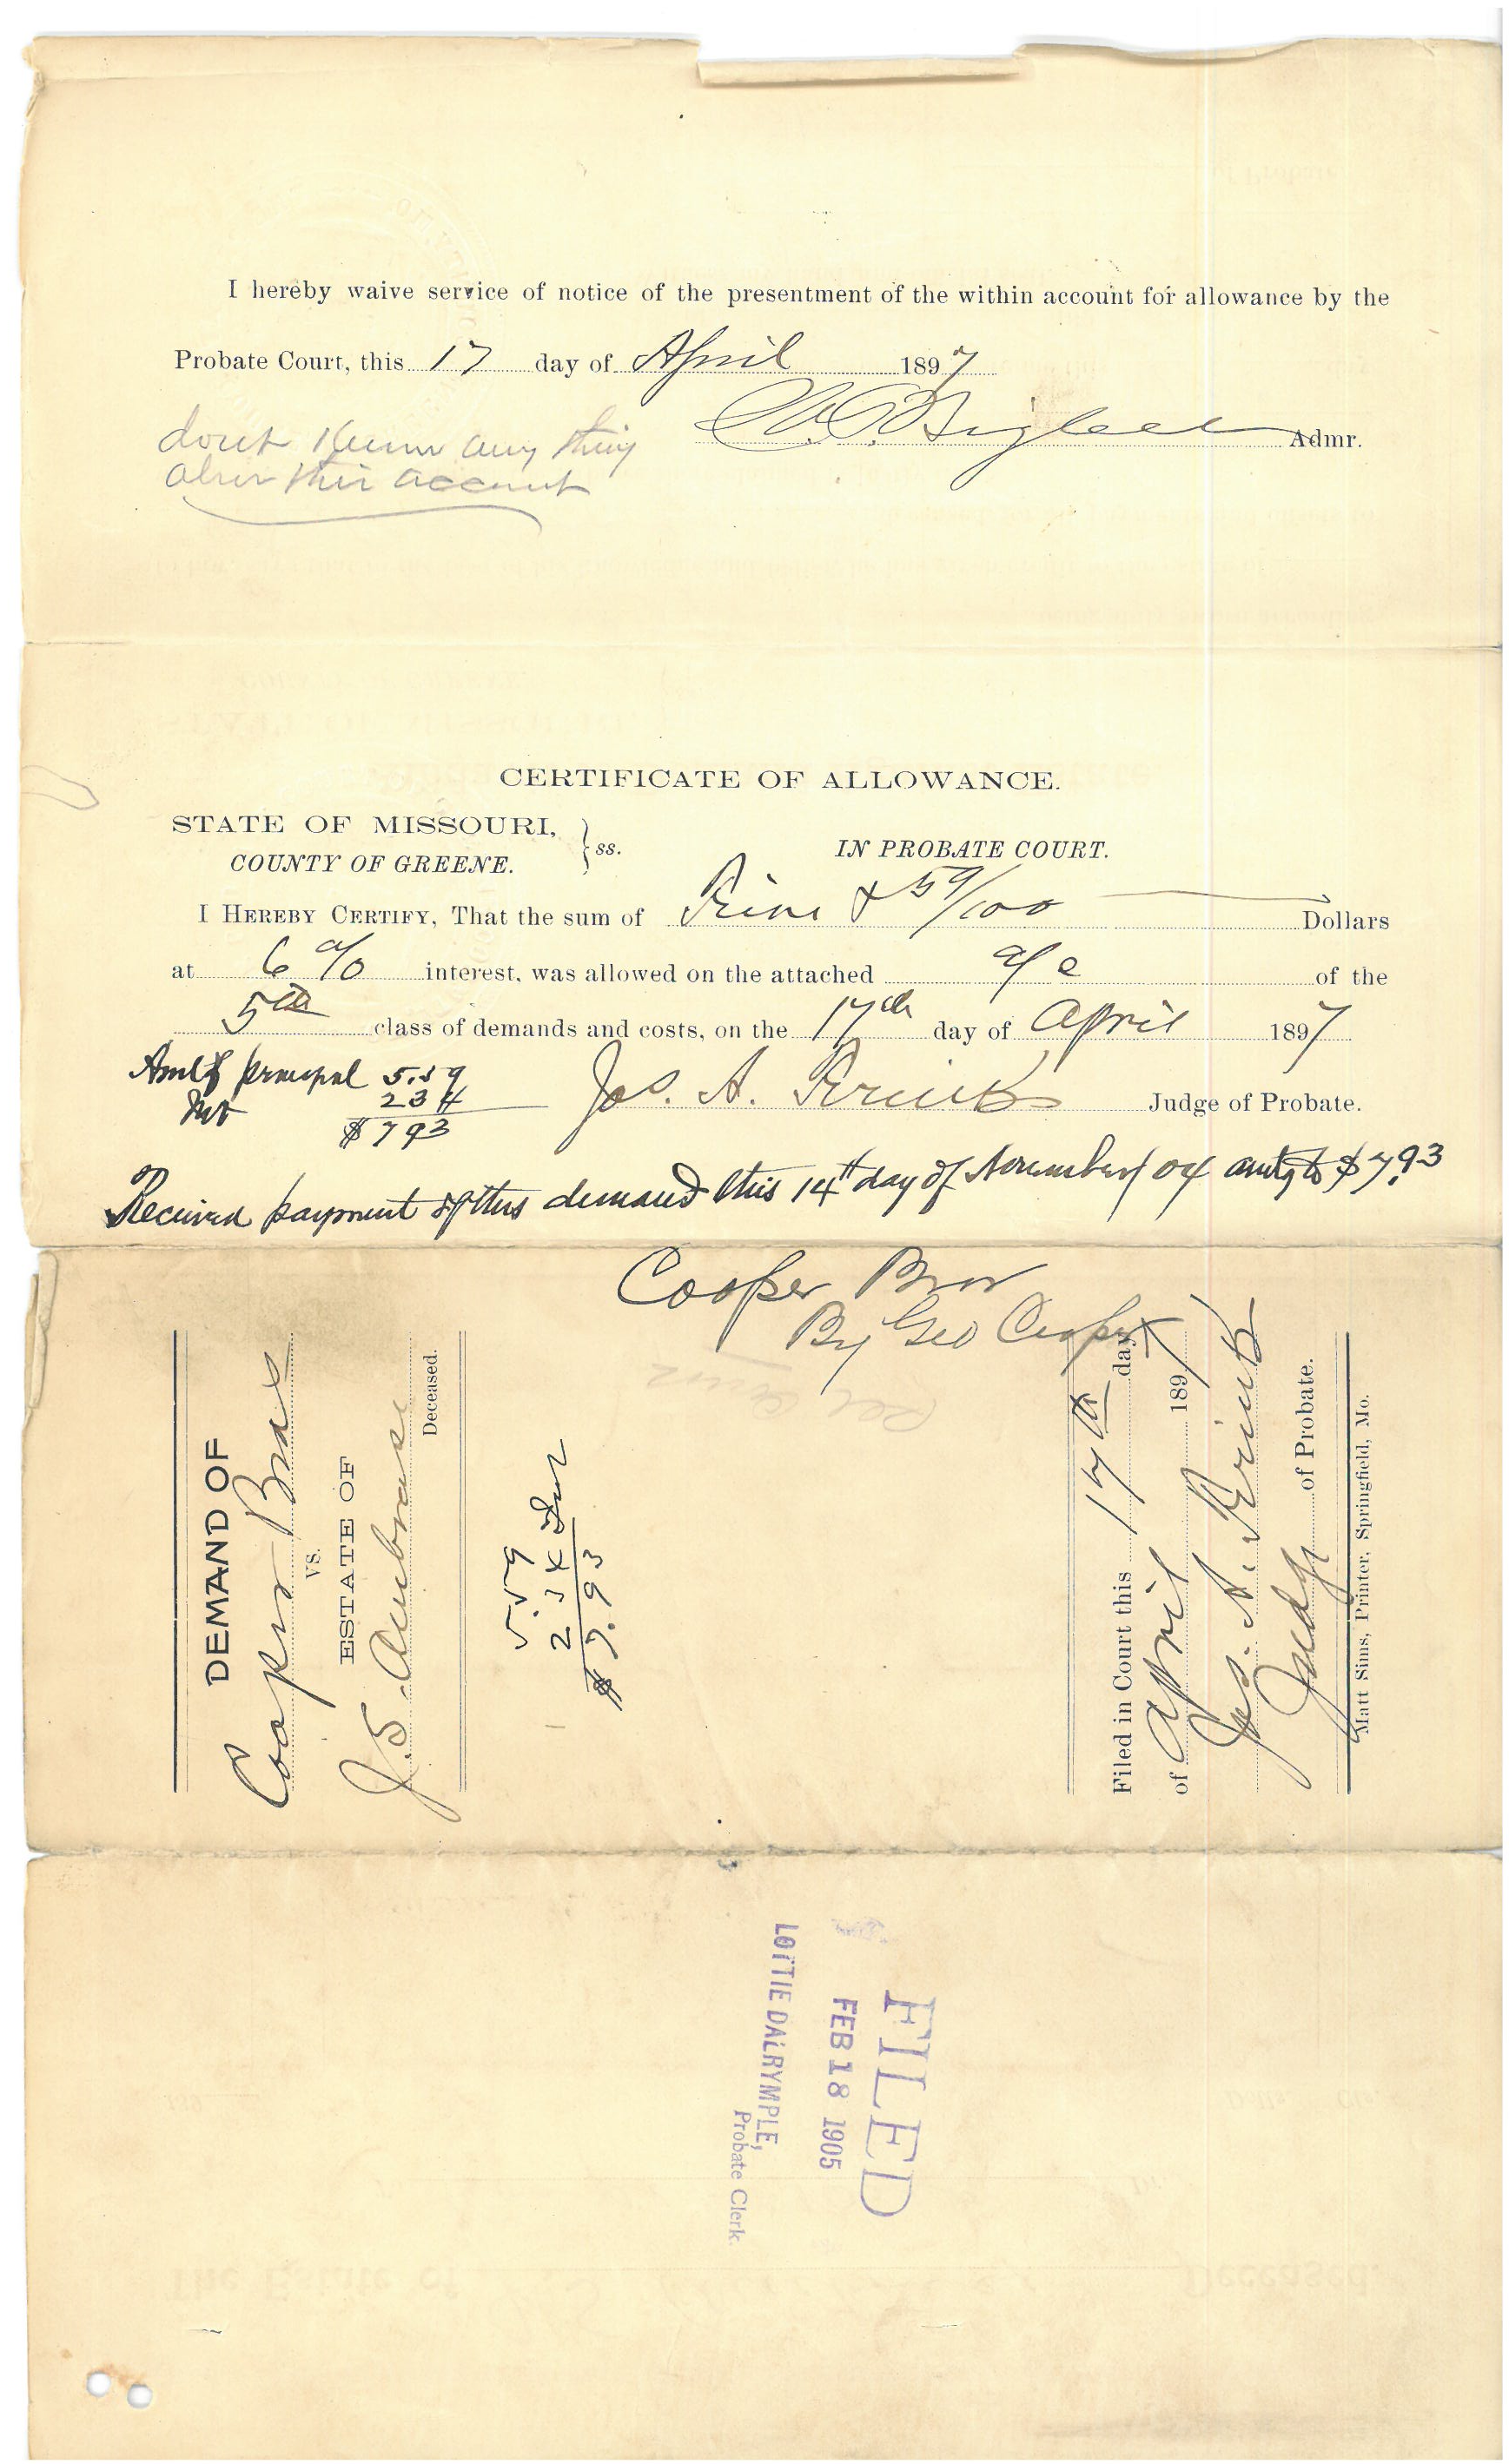 I hereby waive service of notice of the presentment of the within account for allowance by the
Probate Court, this 17 day of April 1897
Admr.
dont Know any thing
about this account
CERTIFICATE OF ALLOWANCE.
STATE OF MISSOURI,
COUNTY OF GREENE.
} ss.
IN PROBATE COURT.
I HEREBY CERTIFY, That the sum of Five & 59/100 Dollars
at 6 % interest, was allowed on the attached a/c of the
5th class of demands and costs, on the 17th day of April 1897
Amt of principal 5.59
Int 234
$ 793
Jos. A. Judge of Probate.
Received payment of this demand this 14th day of November 04 amtg to $7.93
Cooper Bros
By Geo Cooper
DEMAND OF
Cooper Bros
VS.
ESTATE OF
J.S. Ambrose
Deceased.
5 59
2.34 Int
$ 7.93
Filed in Court this 17th day
of April 1897
Jos. A.
Judge of Probate.
Matt Sims, Printer, Springfield, Mo.
FILED
FEB 18 1905
LOTTIE DALRYMPLE,
Probate Clerk.